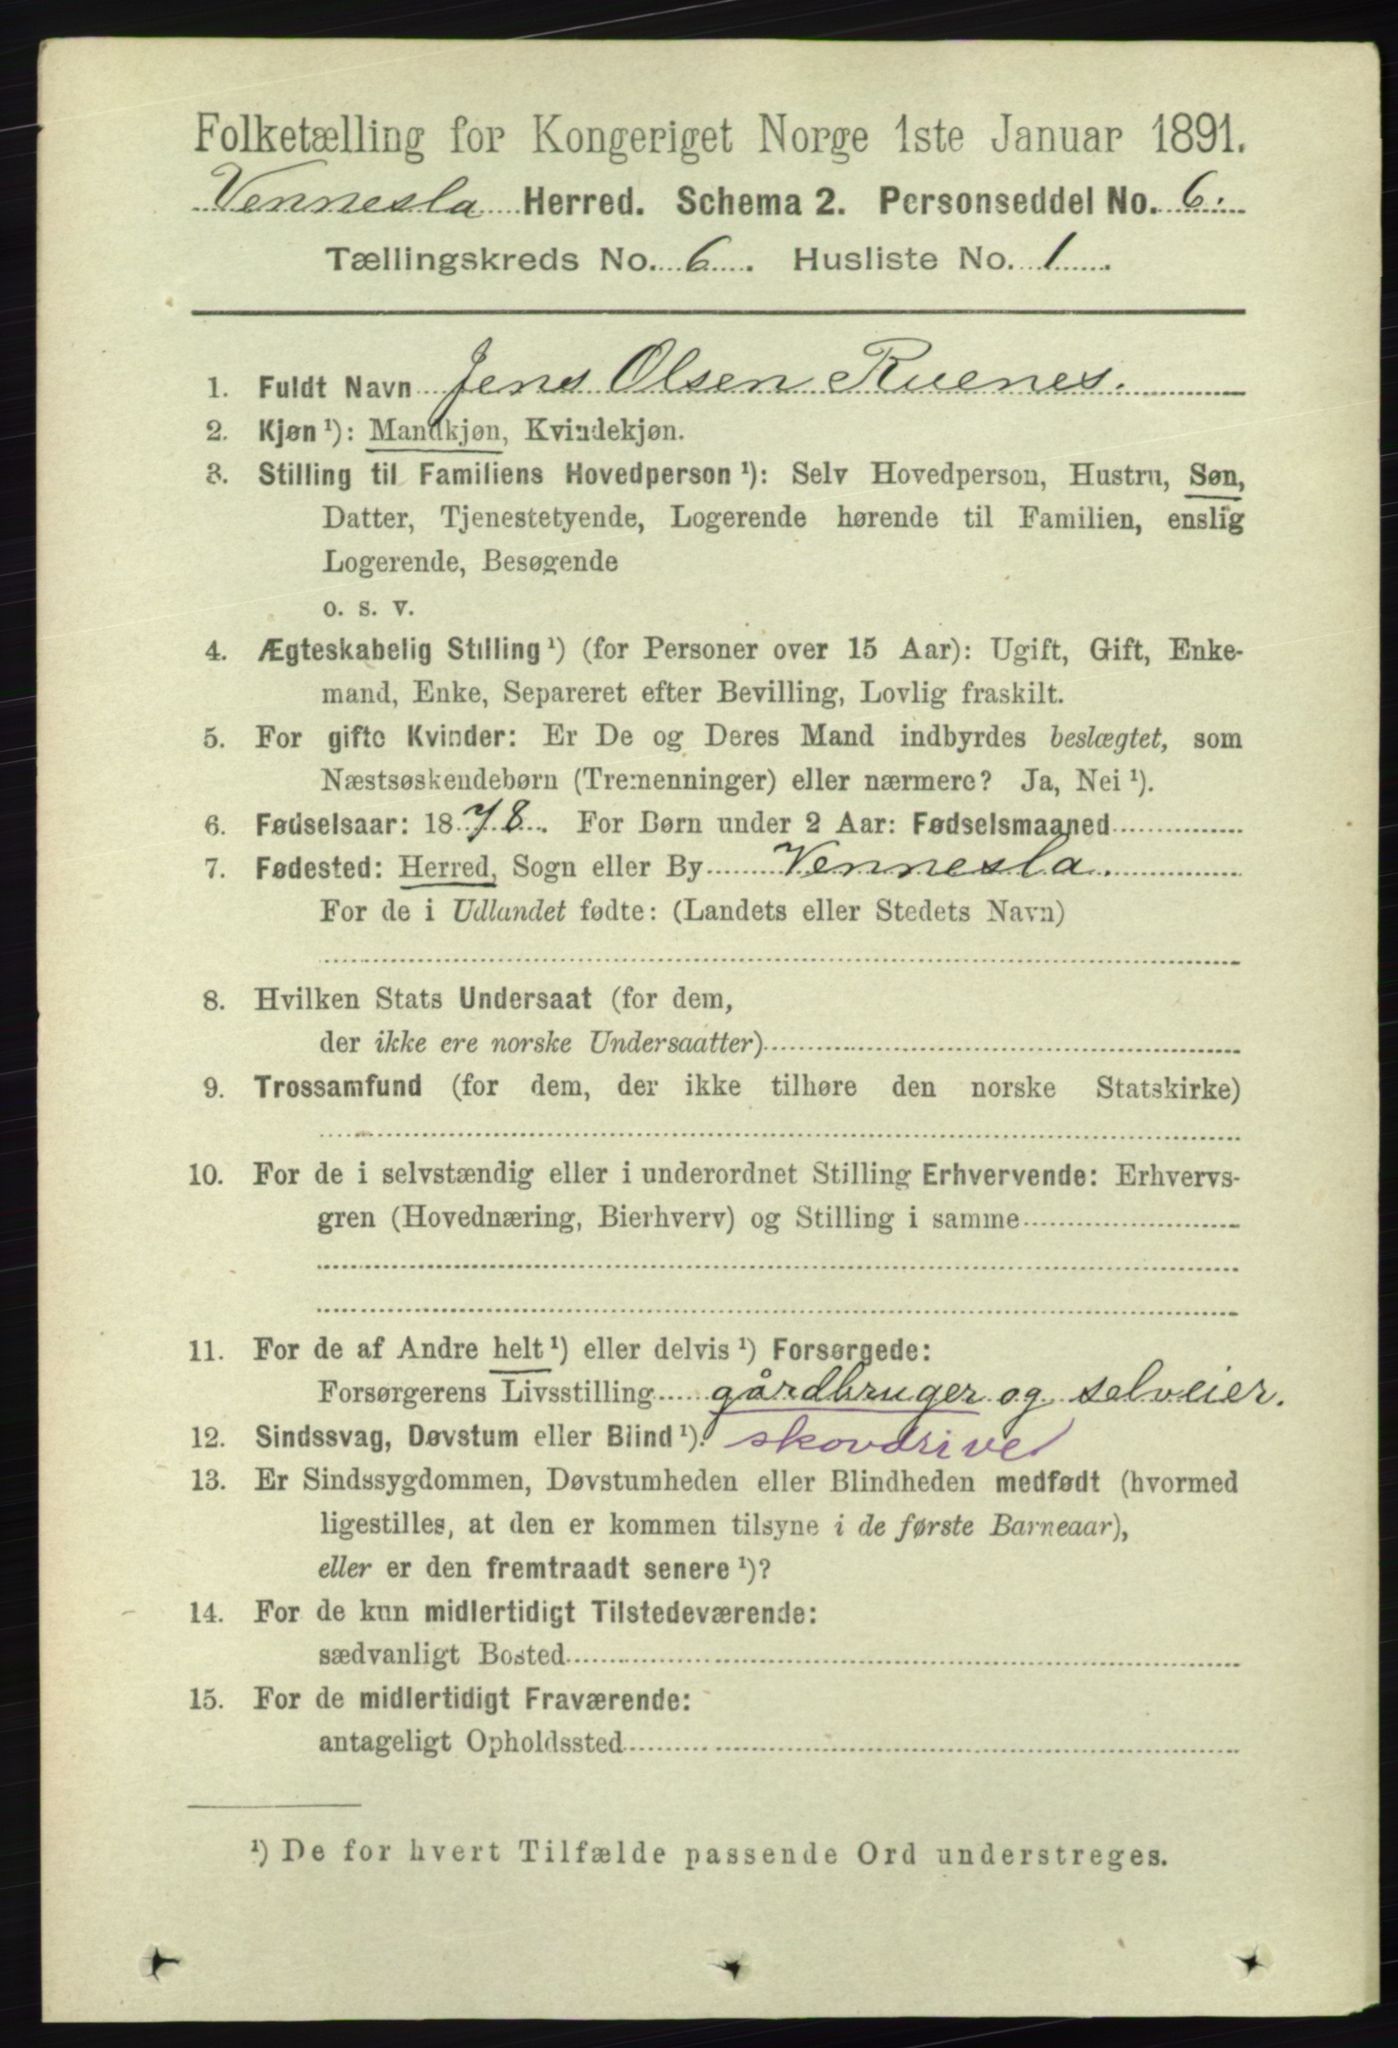 Folketælling for Kongeriget Norge 1ste Januar 1891.
Vennesla Herred. Schema 2. Personseddel No. 6.
Tællingskreds No. 6. Husliste No. 1.
1. Fuldt Navn Jens Olsen Ruenes.
2. Kjøn ¹): Mandkjøn, Kvindekjøn.
3. Stilling til Familiens Hovedperson ¹): Selv Hovedperson, Hustru, Søn,
Datter, Tjenestetyende, Logerende hørende til Familien, enslig
Logerende, Besøgende
o. s. v.
4. Ægteskabelig Stilling ¹) (for Personer over 15 Aar): Ugift, Gift, Enke-
mand, Enke, Separeret efter Bevilling, Lovlig fraskilt.
5. For gifte Kvinder: Er De og Deres Mand indbyrdes beslægtet, som
Næstsøskendebørn (Tremenninger) eller nærmere? Ja, Nei ¹).
6. Fødselsaar: 1878. For Børn under 2 Aar: Fødselsmaaned
7. Fødested: Herred, Sogn eller By Vennesla.
For de i Udlandet fødte: (Landets eller Stedets Navn)
8. Hvilken Stats Undersaat (for dem,
der ikke ere norske Undersaatter)
9. Trossamfund (for dem, der ikke tilhøre den norske Statskirke)
10. For de i selvstændig eller i underordnet Stilling Erhvervende: Erhvervs-
gren (Hovednæring, Bierhverv) og Stilling i samme
11. For de af Andre helt ¹) eller delvis ¹) Forsørgede:
Forsørgerens Livsstilling gårdbruger og selveier.
12. Sindssvag, Døvstum eller Blind ¹). skovdrive
13. Er Sindssygdommen, Døvstumheden eller Blindheden medfødt (hvormed
ligestilles, at den er kommen tilsyne i de første Barneaar),
eller er den fremtraadt senere ¹)?
14. For de kun midlertidigt Tilstedeværende:
sædvanligt Bosted
15. For de midlertidigt Fraværende:
antageligt Opholdssted
¹) De for hvert Tilfælde passende Ord understreges.